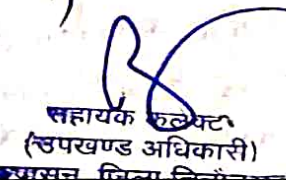 सहायक कलेक्टर
(उपखण्ड अधिकारी)
जिला